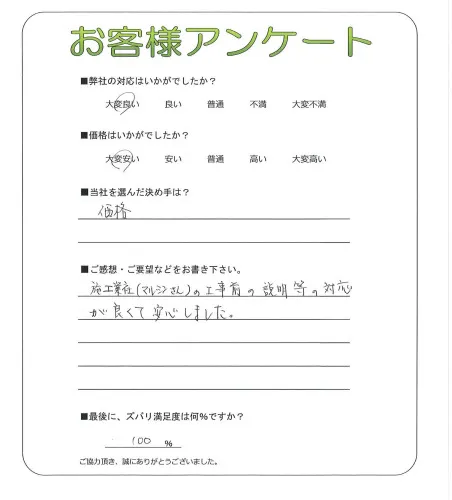 お客様アンケート
■弊社の対応はいかがでしたか？
大変良い　良い　普通　不満　大変不満
■価格はいかがでしたか？
大変安い　安い　普通　高い　大変高い
■当社を選んだ決め手は？
価格
■ご感想・ご要望などをお書き下さい。
施工業社(マルシンさん)の工事前の説明等の対応
が良くて安心しました。
■最後に、ズバリ満足度は何%ですか？
100 %
ご協力頂き、誠にありがとうございました。